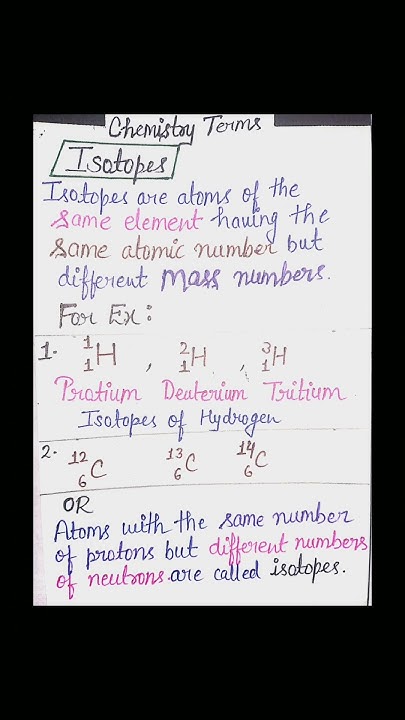 Chemistry Terms
Isotopes
Isotopes are atoms of the
same element having the
same atomic number but
different mass numbers.
For Ex:
1. ¹₁H , ²₁H , ³₁H
Protium Deuterium Tritium
Isotopes of Hydrogen
2. ¹²₆C ¹³₆C ¹⁴₆C
OR
Atoms with the same number
of protons but different numbers
of neutrons are called isotopes.